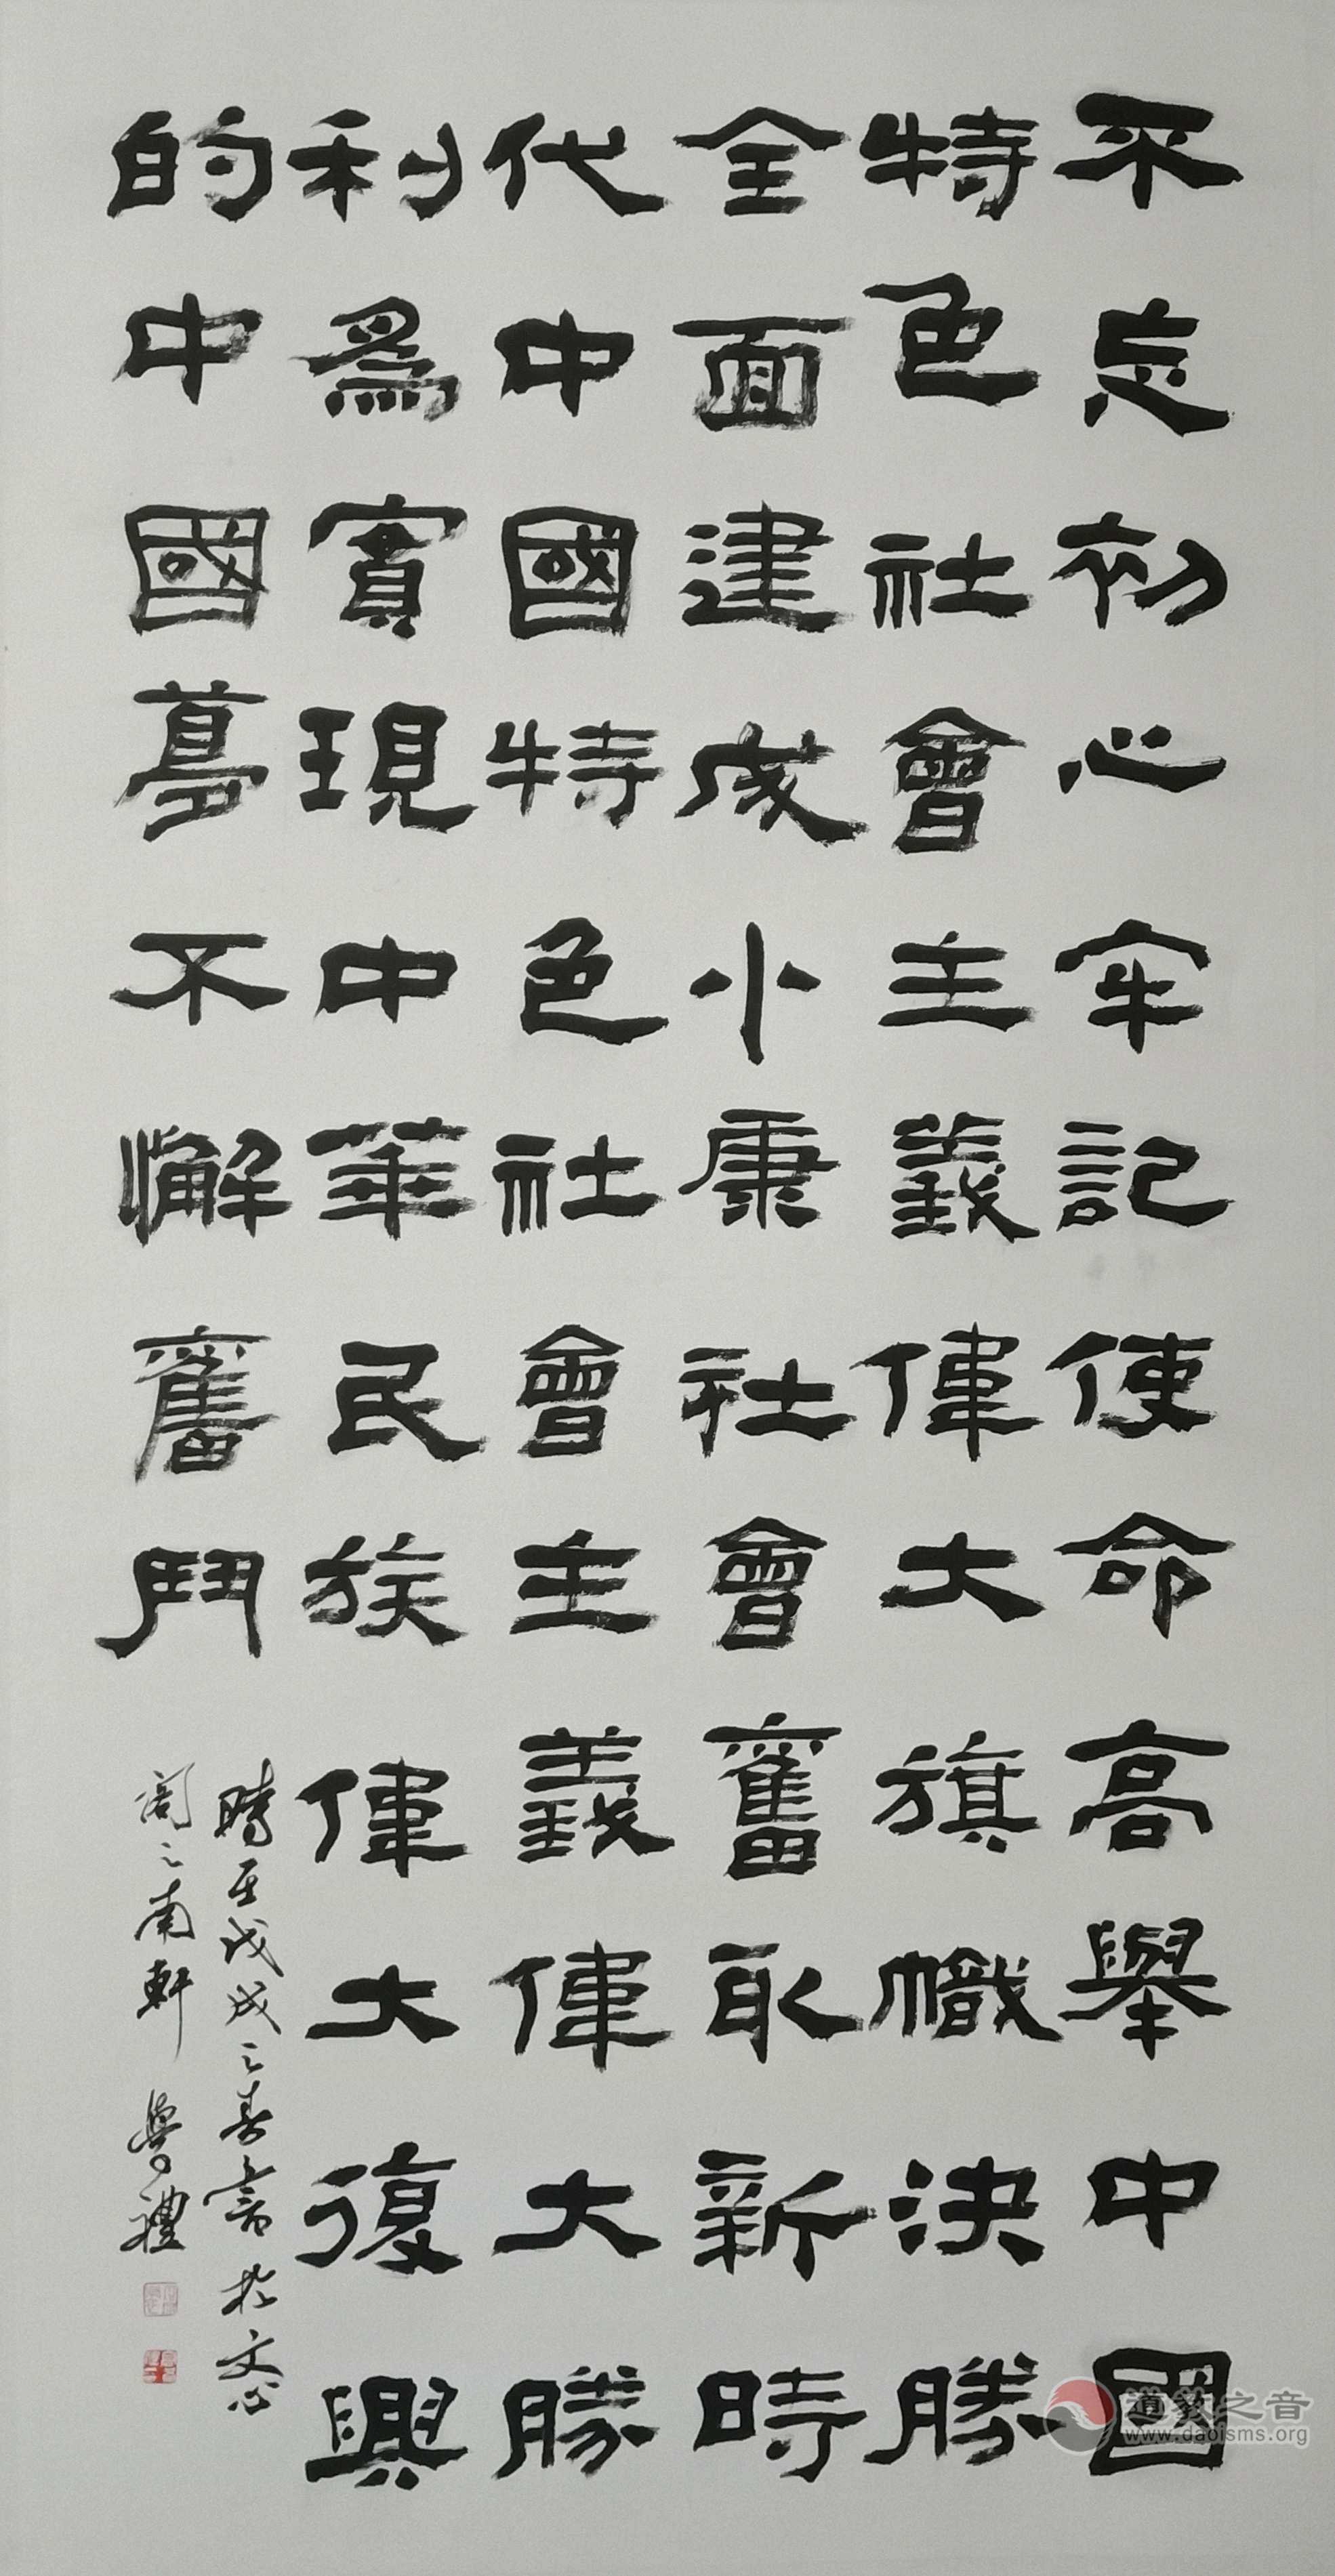 不忘初心牢記使命高舉中國
特色社會主義偉大旗幟決勝
全面建成小康社會奮取新時
代中國特色社會主義偉大勝
利為實現中華民族偉大復興
的中國夢不懈奮鬥
時在戊戌之春書於文心
閣之南軒 學禮
道教之音
www.daoisms.org